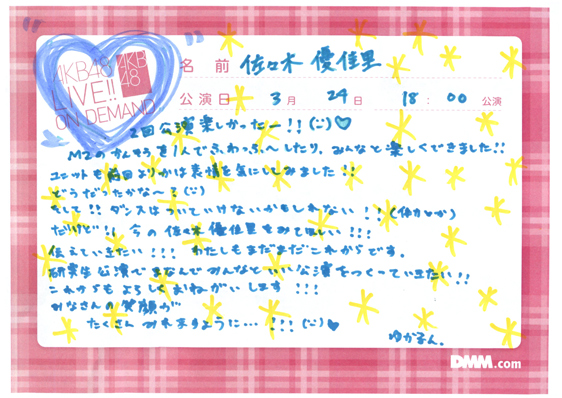 AKB48
LIVE!!
ON DEMAND
AKB
48
名 前 佐々木 優佳里
公演日 3月 24日 18:00 公演
2回公演楽しかったー!!(:)♡
M2のかんそうを1人でふわっふ〜したり、みんなと楽しくできました!!
ユニットも前回よりかは表情を気にしてみました!!
どうだったかな〜?(:)
そして!!ダンスはついていけないかもしれない!!(体力とか)
だけど!!今の佐々木優佳里をみてほしい!!!
伝えていきたい!!! わたしもまだまだこれからです。
研究生公演でまなんでみんなといい公演をつくっていきたい!!
これからもよろしくおねがいします!!!
みなさんの笑顔が
たくさんみれますように…!!!(:)♥
ゆかるん。
DMM.com